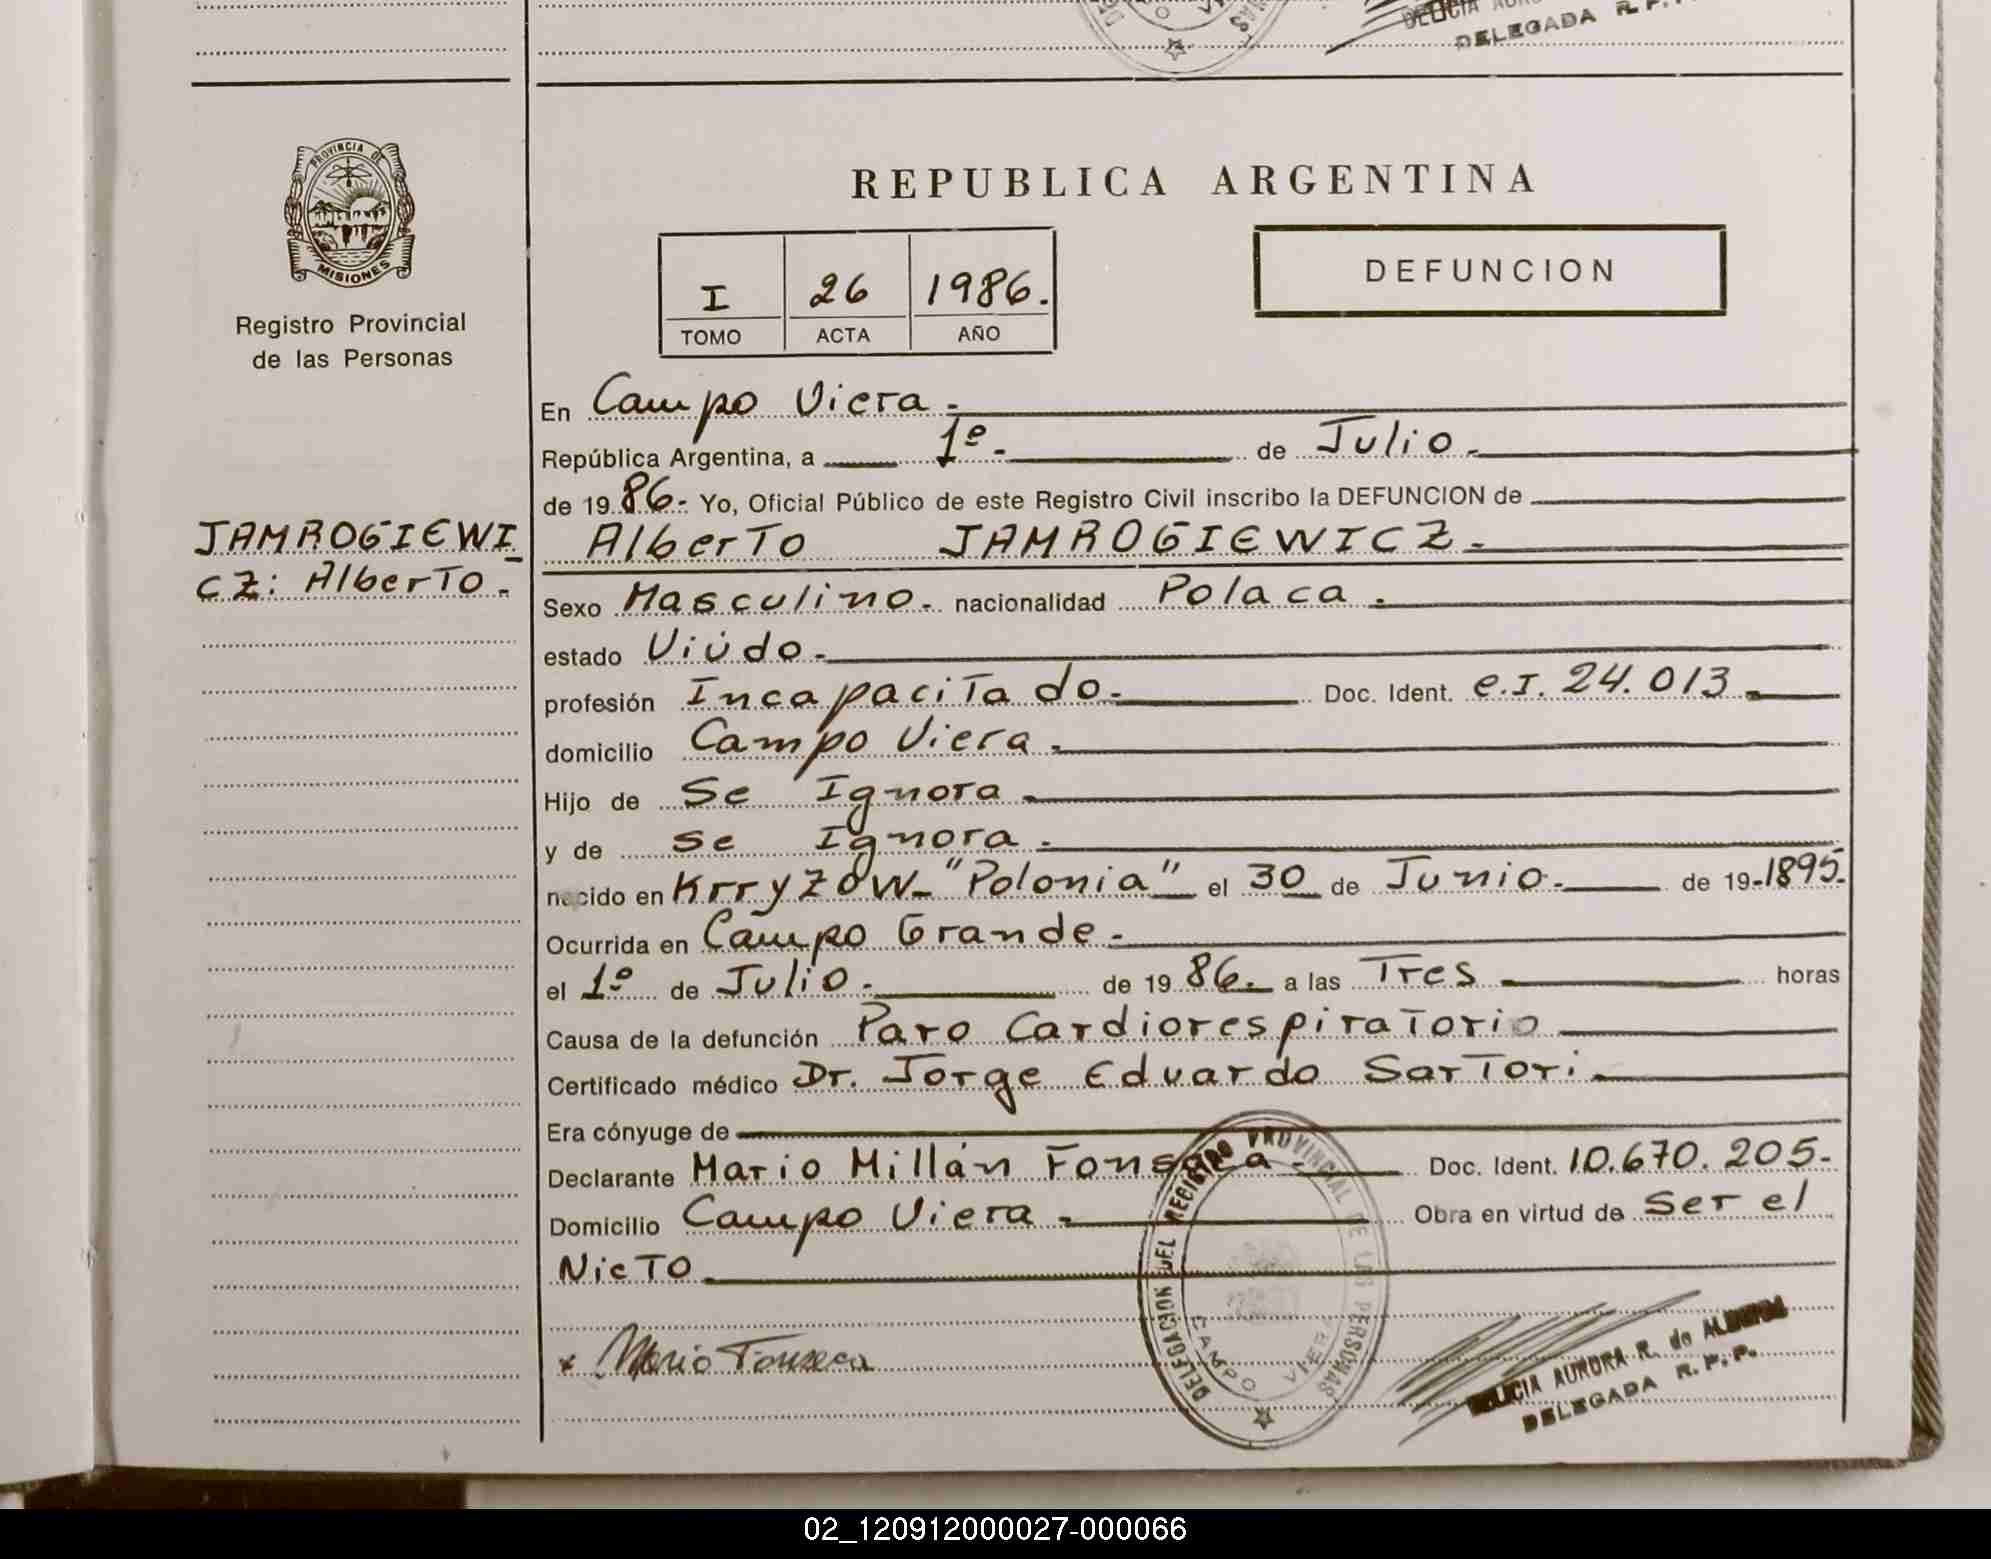 DELEGADA R.P.
PROVINCIA DE
MISIONES
Registro Provincial
de las Personas
JAMROGIEWI
CZ: Alberto.
REPUBLICA ARGENTINA
I 26 1986.
TOMO ACTA AÑO
DEFUNCION
En Campo Viera.
República Argentina, a 1º. de Julio.
de 19 86. Yo, Oficial Público de este Registro Civil inscribo la DEFUNCION de
Alberto JAMROGIEWICZ.
Sexo Masculino. nacionalidad Polaca.
estado Viúdo.
profesión Incapacitado. Doc. Ident. e.I. 24.013
domicilio Campo Viera.
Hijo de Se Ignora
y de Se Ignora.
nacido en Krryzow- "Polonia" el 30 de Junio. de 19-1895.
Ocurrida en Campo Grande.
el 1º de Julio. de 19 86. a las Tres horas
Causa de la defunción Paro Cardiorespiratorio
Certificado médico Dr. Jorge Eduardo Sartori.
Era cónyuge de
Declarante Mario Millán Fonseca. Doc. Ident. 10.670.205.
Domicilio Campo Viera. Obra en virtud de Ser el
Nieto
DELEGACION DEL REGISTRO PROVINCIAL DE LAS PERSONAS
CAMPO VIERA
x Mario Fonseca
DELICIA AURORA R. de
DELEGADA R. P. P.
02_120912000027-000066